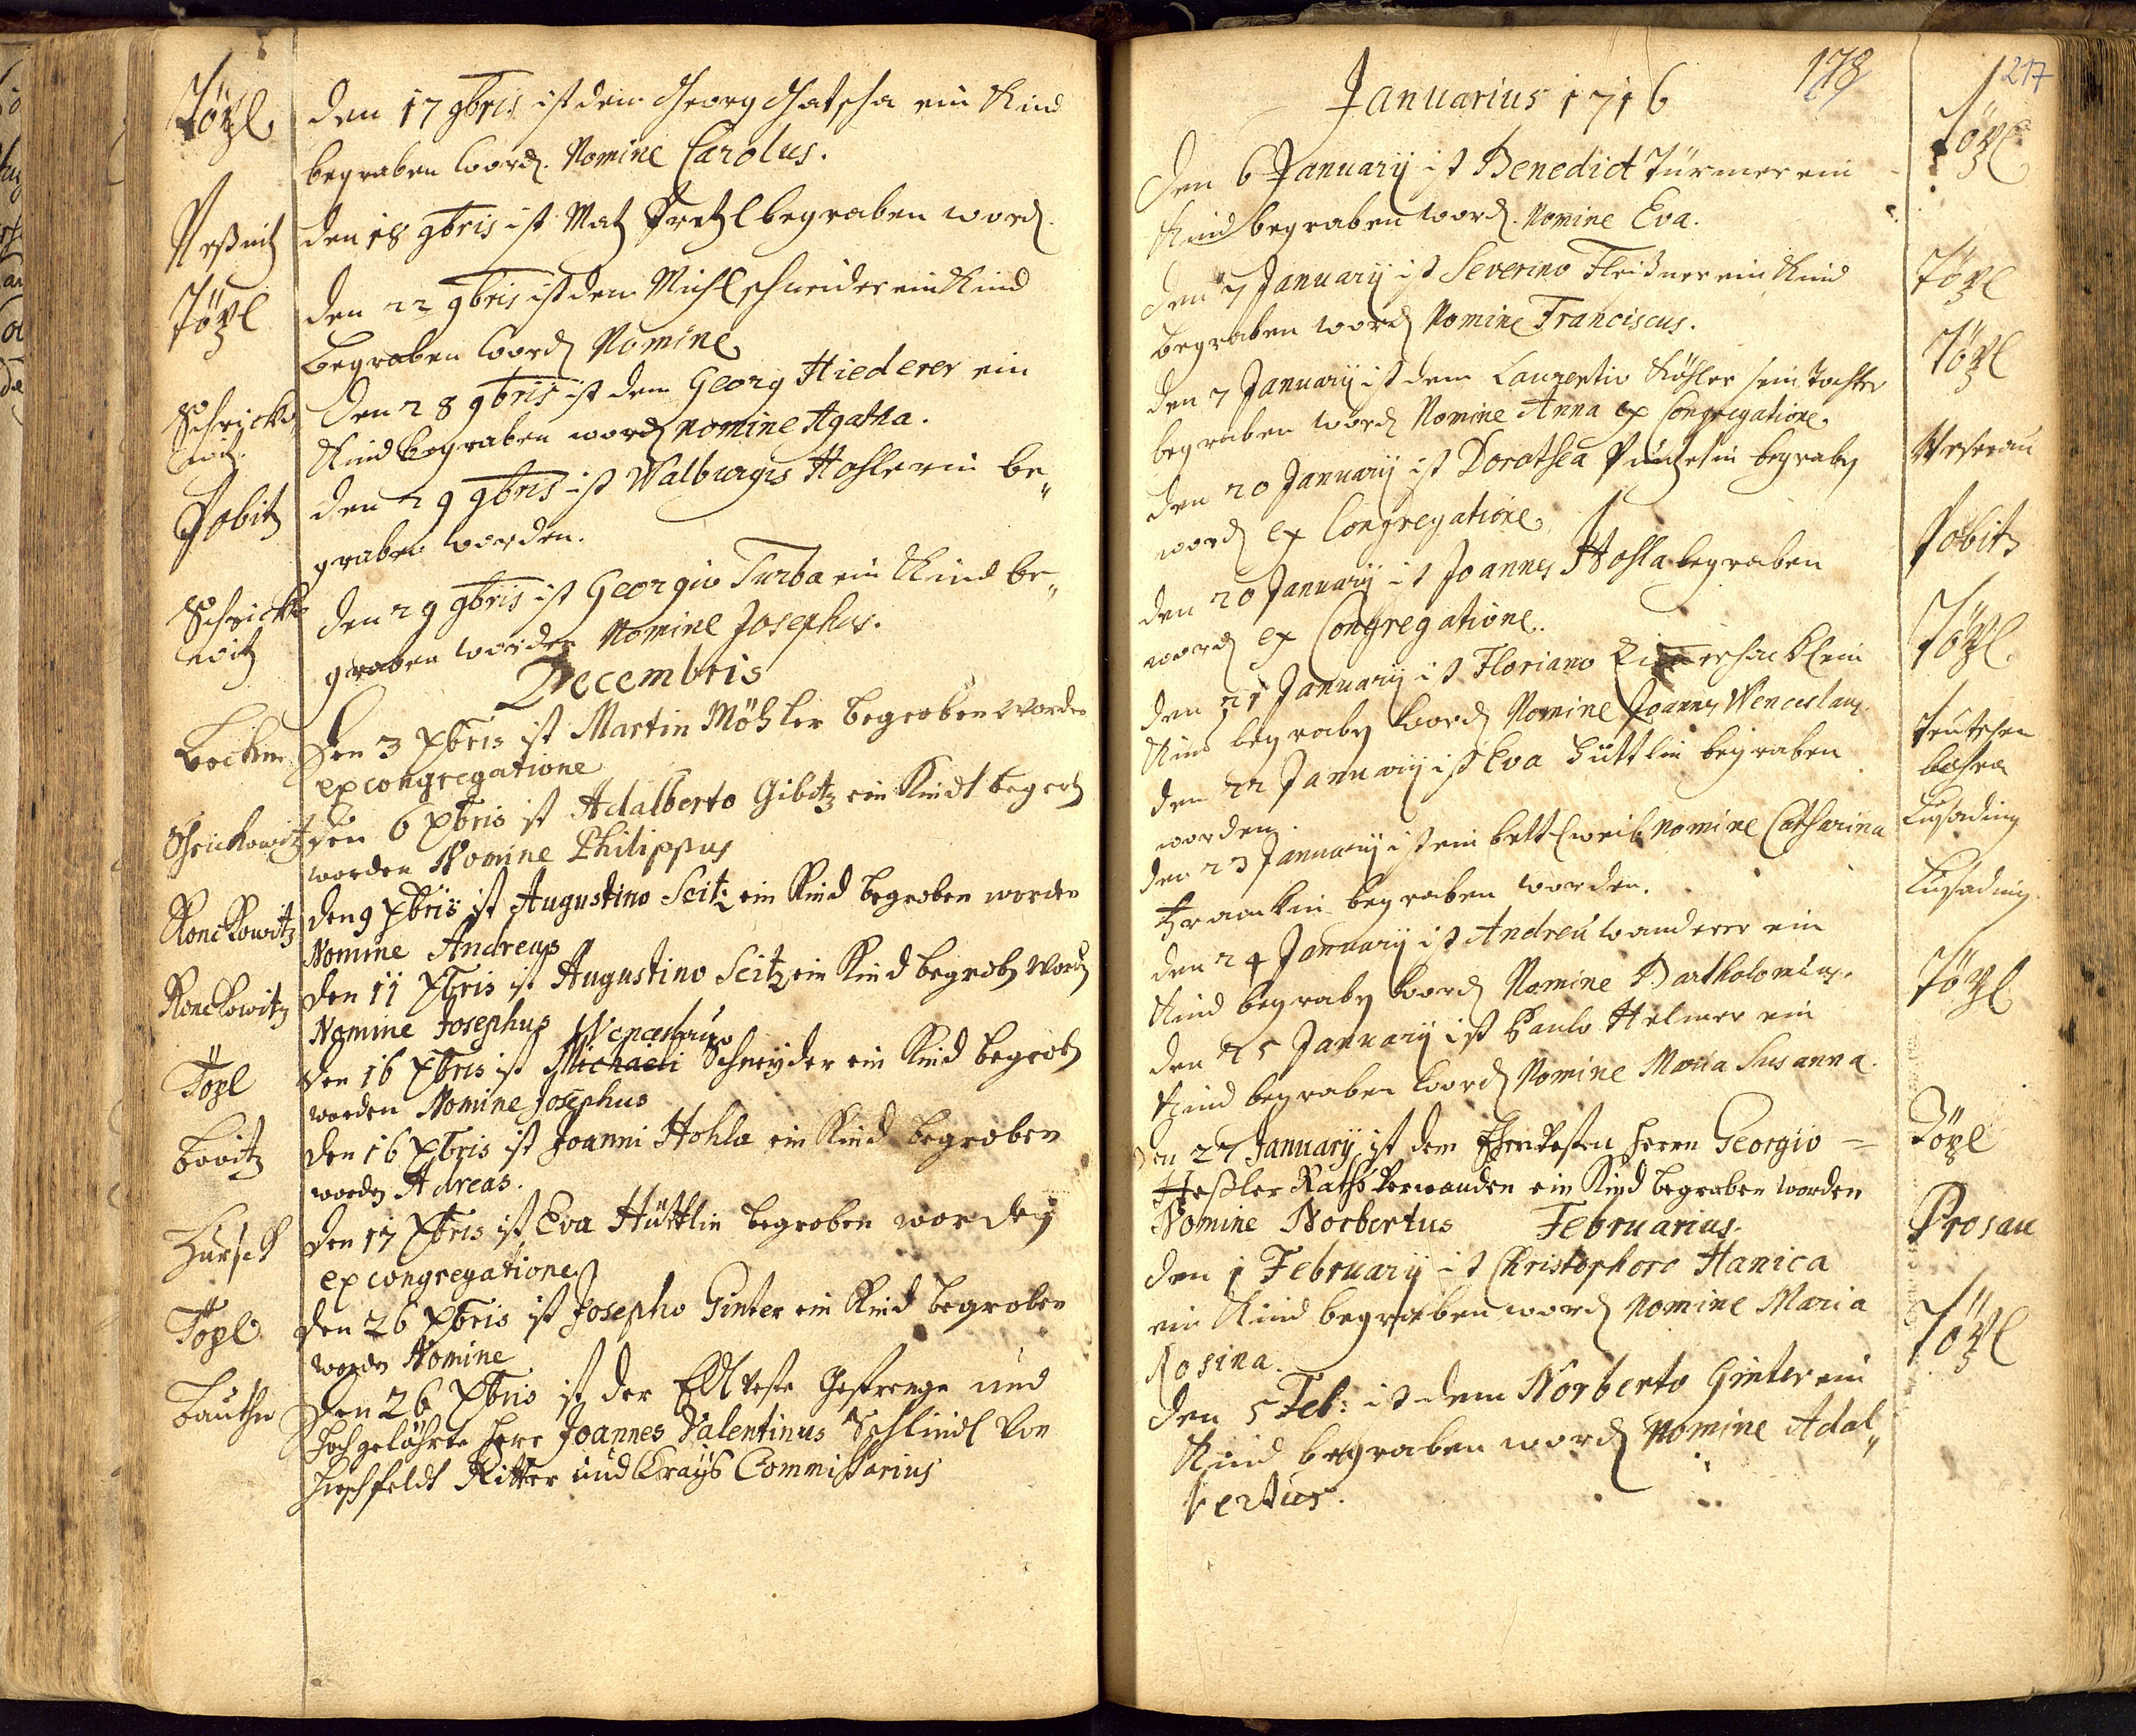 Töpl
den 17 9bris ist dem Georg Hatscha ein Kind
begraben word. Nomine Carolus.
den 18 9bris ist Matz begraben word.
Töpl
den 22 9bris ist dem Michl schneider ein Kind
begraben word Nomine
Schricko
witz
den 28 9bris ist dem Georg Hiederer ein
Kind begraben word nomine Agatha.
Pobitz
den 29 9bris ist Walburgis Hohlerin be„
graben worden.
Schricko
witz
den 29 9bris ist Georgio Turba ein Kind be„
graben worden Nomine Josephus.
Decembris
Den 3 Xbris ist Martin Möhler begraben worden
ex congregatione
Schrickowitz
den 6 Xbris ist Adalberto Gibitz ein Kindt begrabn
worden Nomine Philippus
Ronckowitz
den 9 Xbris ist Augustino Seitz ein Kind begraben worden
Nomine Andreas
Ronckowitz
den 11 Xbris ist Augustino Seitz ein Kind begrabn wordn
Nomine Josephus
Wenceslauo
Töpl
den 16 Xbris ist Michaeli Schneyder ein Kind begrabn
worden Nomine Josephus
den 16 Xbris ist Joanni Hohla ein Kind begraben
worden Adreas.
den 17 Xbris ist Eva Hüttlin begraben worden
ex congregatione
Töpl
den 26 Xbris ist Josepho Ginter ein Kind begraben
worden Nomine
Den 26 Xbris ist der Edl veste Gestrenge und
Hochgelährte Herr Joannes Valentinus Schlindl von
Hirschfeldt Ritter und Crayß Commissarius
178
217
Januarius 1716
den 6 January ist Benedict Türmer ein
Töpl
Kind begraben word. Nomine Eva.
den 7 January ist Severino Fleißner ein Kind
Töpl
begraben word Nomine Franciscus.
den 7 January ist dem Laurentio Köhler sein Tochter
Töpl
begraben word Nomine Anna ex Congregatione
den 20 January ist Dorothea begrabn
word ex Congregatione
den 20 January ist Joannes Hohla begraben
Pobitz
word ex Congregatione.
den 21 January ist Floriano ein
Töpl
Kind begrabn word Nomine Joannes Wenceslaus
den 22 January ist Eva Hüttlin begraben
worden.
den 23 January ist ein bettlweib nomine Catharina
begraben worden.
den 24 January ist Andreu wanderer ein
Kind begrabn word Nomine Bartholomeus.
den 25 January ist Paulo Helmer ein
Töpl
Kind begraben word Nomine Maria Susanna.
den 27 January ist dem Ehrnvesten Herrn Georgio =
Töpl
Heßler Rathsverwanden ein Kind begraben worden
Nomine Norbertus
Februarius.
den 1 February ist Christophoro Hanica
Prosau
ein Kind begraben word nomine Maria
Rosina.
den 5 Feb: ist dem Norberto Ginter ein
Töpl
Kind begraben word Nomine Adal„
bertus.